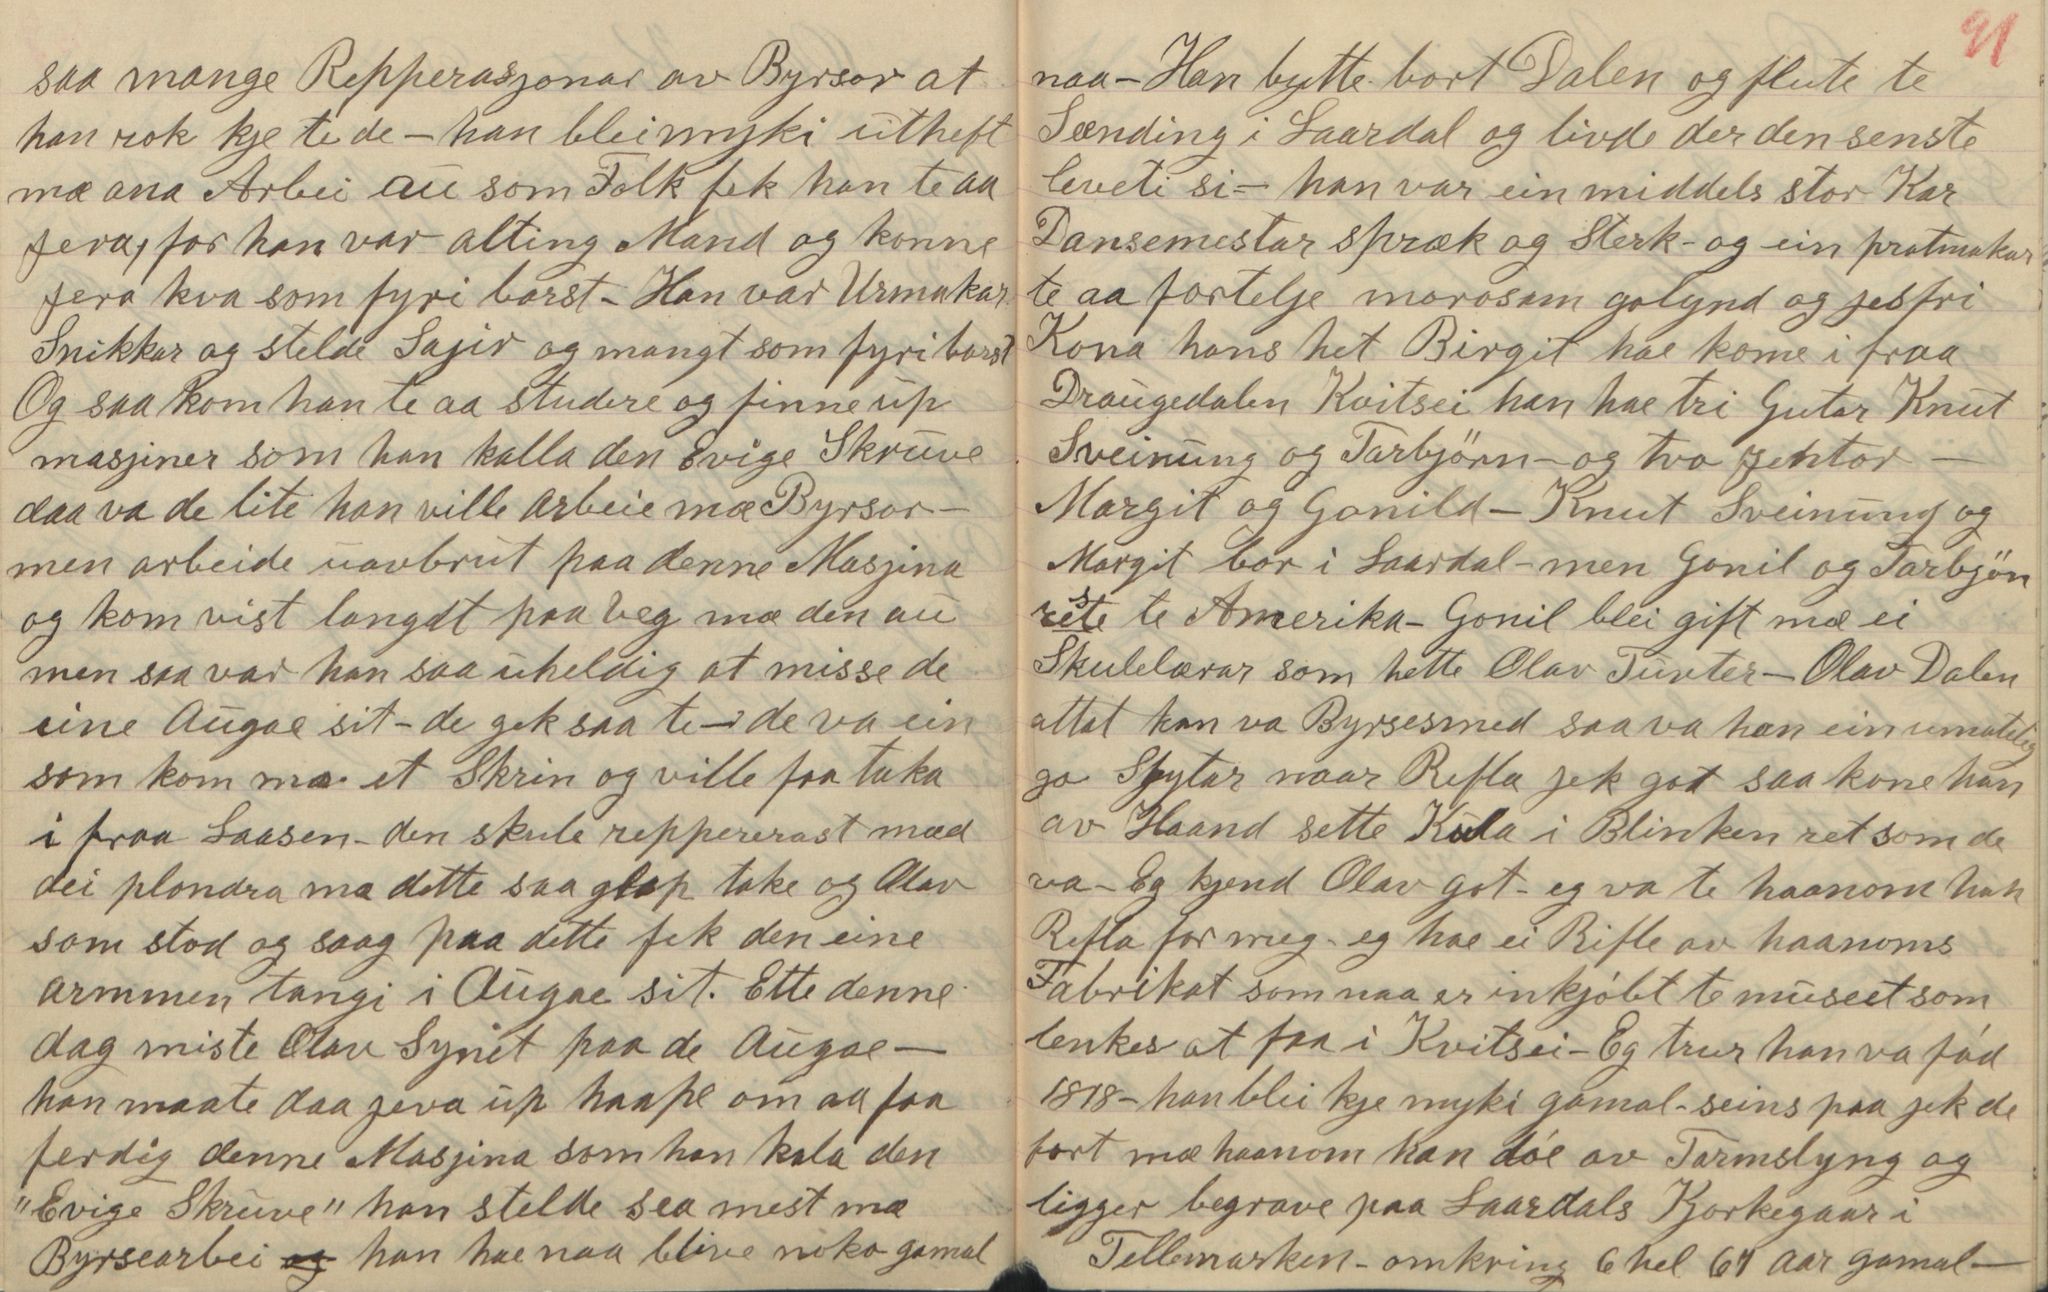 saa mange Repperasjonar av Byrsor at
han rok kje te de – han blei myki utheft
mæ ana Arbei au som Folk fek han te aa
jera, for han var alting Mand og konne
jera kva som fyri barst – Han var Urmakar
Snikkar og stelde Sagir og mangt som fyri barst
Og saa kom han te aa studere og finne up
masjiner som han kalla den Evige Skruve
daa va de lite han ville arbeie mæ Byrsor –
men arbeide uavbrut paa denne Masjina
og kom vist langdt paa Veg mæ den au
men saa var han saa uheldig at misse de
eine Augae sit – de gek saa te – de va ein
som kom mæ et Skrin og ville faa taka
i fraa Laasen – den skule reppererast mæd
dei plondra mæ dette saa glap take og Olav
som stod og saag paa dette fek den eine
armmen tangi i Augae sit. Ette denne
dag miste Olav Synet paa de Augae –
han maate daa jeva up haape om aa faa
ferdig denne Masjina som han kala den
"Evige Skruve" han stelde sea mest mæ
Byrsearbei og han hae naa blive noko gamal
91
naa – Han bytte bort Dalen og flute te
Sænding i Laardal og livde der den senste
leveti si – han var ein middels stor Kar
Dansemestar spræk og sterk – og ein pratmakar
te aa fortelje morosam golynd og jesfri
Kona hans het Birgit hae kome i fraa
Draugedalen Kvitsei han hae tri Gutar Knut
Sveinung og Tarbjörn – og tvo jentor –
Margit og Gonild – Knut Sveinung og
Margit bor i Laardal – men Gonil og Tarbjön
reiste te Amerika – Gonil blei gift mæ ei
Skulelærar som hette Olav Tunter – Olav Dalen
attat han va Byrsesmed saa va han ein umatelig
go Skytar naar Rifla jek got saa kone han
av Haand sette Kula i Blinken ret som de
va – Eg kjend Olav got – eg va te haanom han
Rifla for meg – eg hae ei Rifle av haanoms
Fabrikat som naa er inkjóbt te museet som
tenkes at faa i Kvitsei – Eg trur han va fód
1818 – han blei kje myki gamal – seins paa jek de
bort mæ haanom han dóe av Tarmslyng og
ligger begrave paa Laardals Kjorkegaar i
Tellemarken – omkring 6 hel 67 aar gamal –